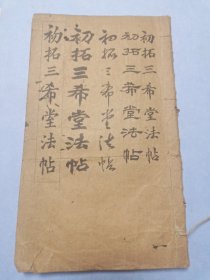 初拓三希堂法帖
初拓三希堂法帖
初拓三希堂法帖
初拓三希堂法帖
初拓三希堂法帖